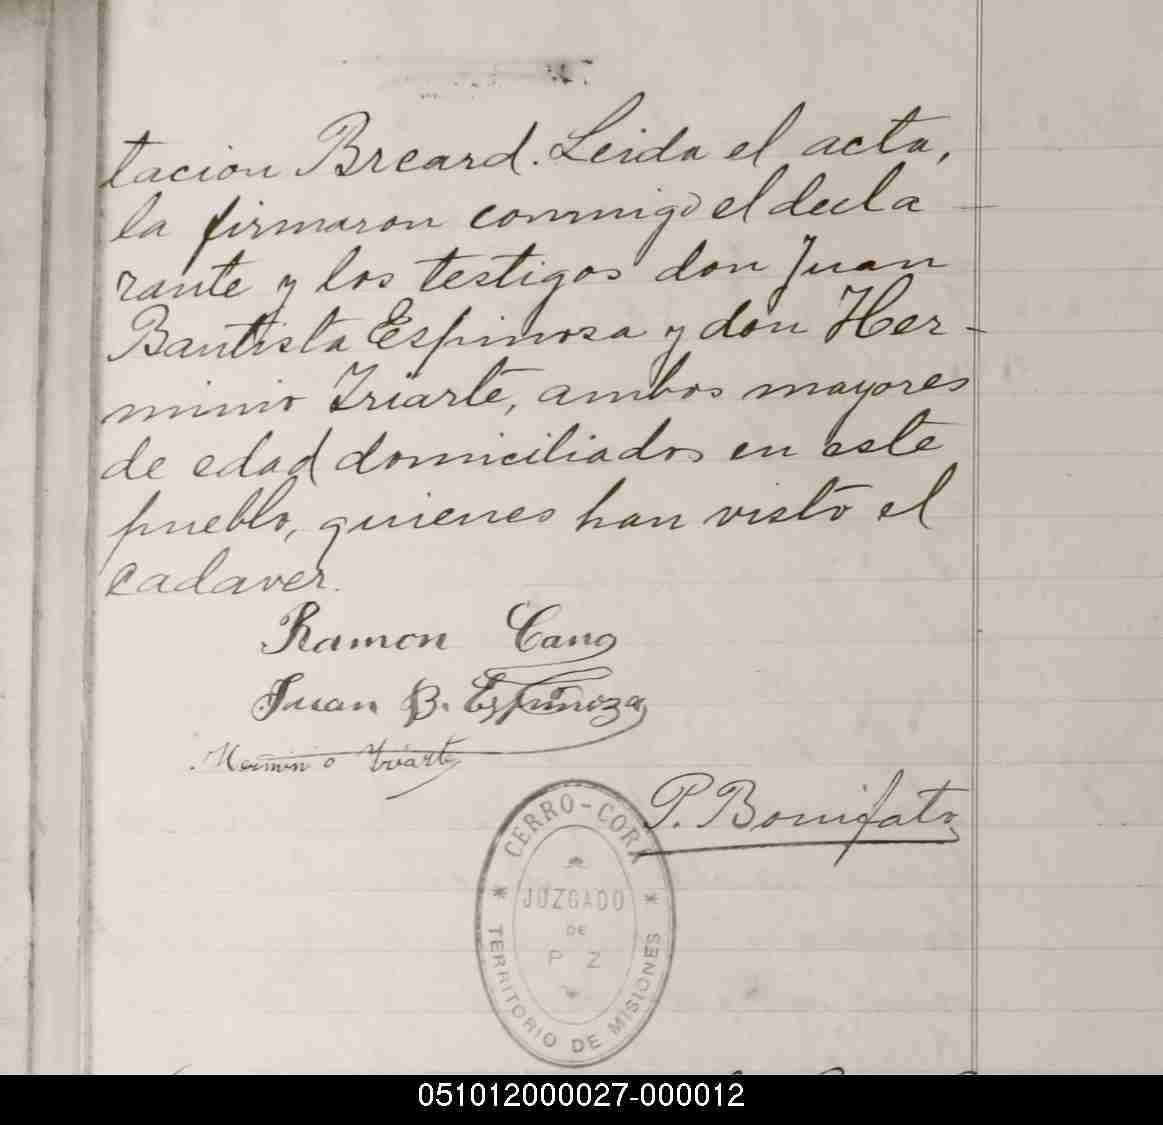 tacion Breard. Leida el acta,
la firmaron conmigo el decla
rante y los testigos don Juan
Bautista Espinosa y don Her-
minio Iriarte, ambos mayores
de edad domiciliados en este
pueblo, quienes han visto el
cadaver.
Ramon Cano
Juan B. Espinoza
Herminio Yriarte
P. Bonifato
CERRO-CORA
JUZGADO
DE
P Z
TERRITORIO DE MISIONES
051012000027-000012